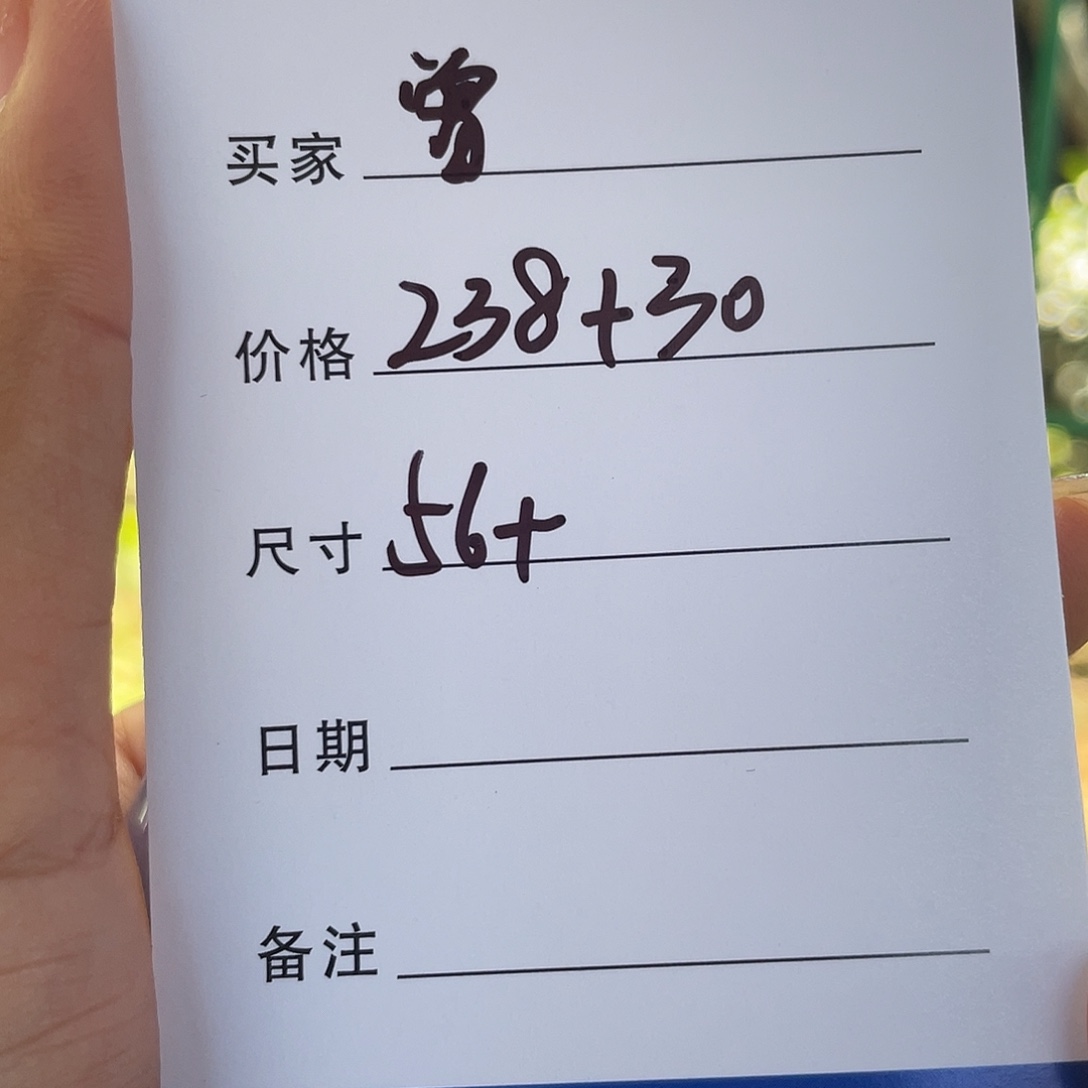 买家 曾
价格 238+30
尺寸 56+
日期
备注